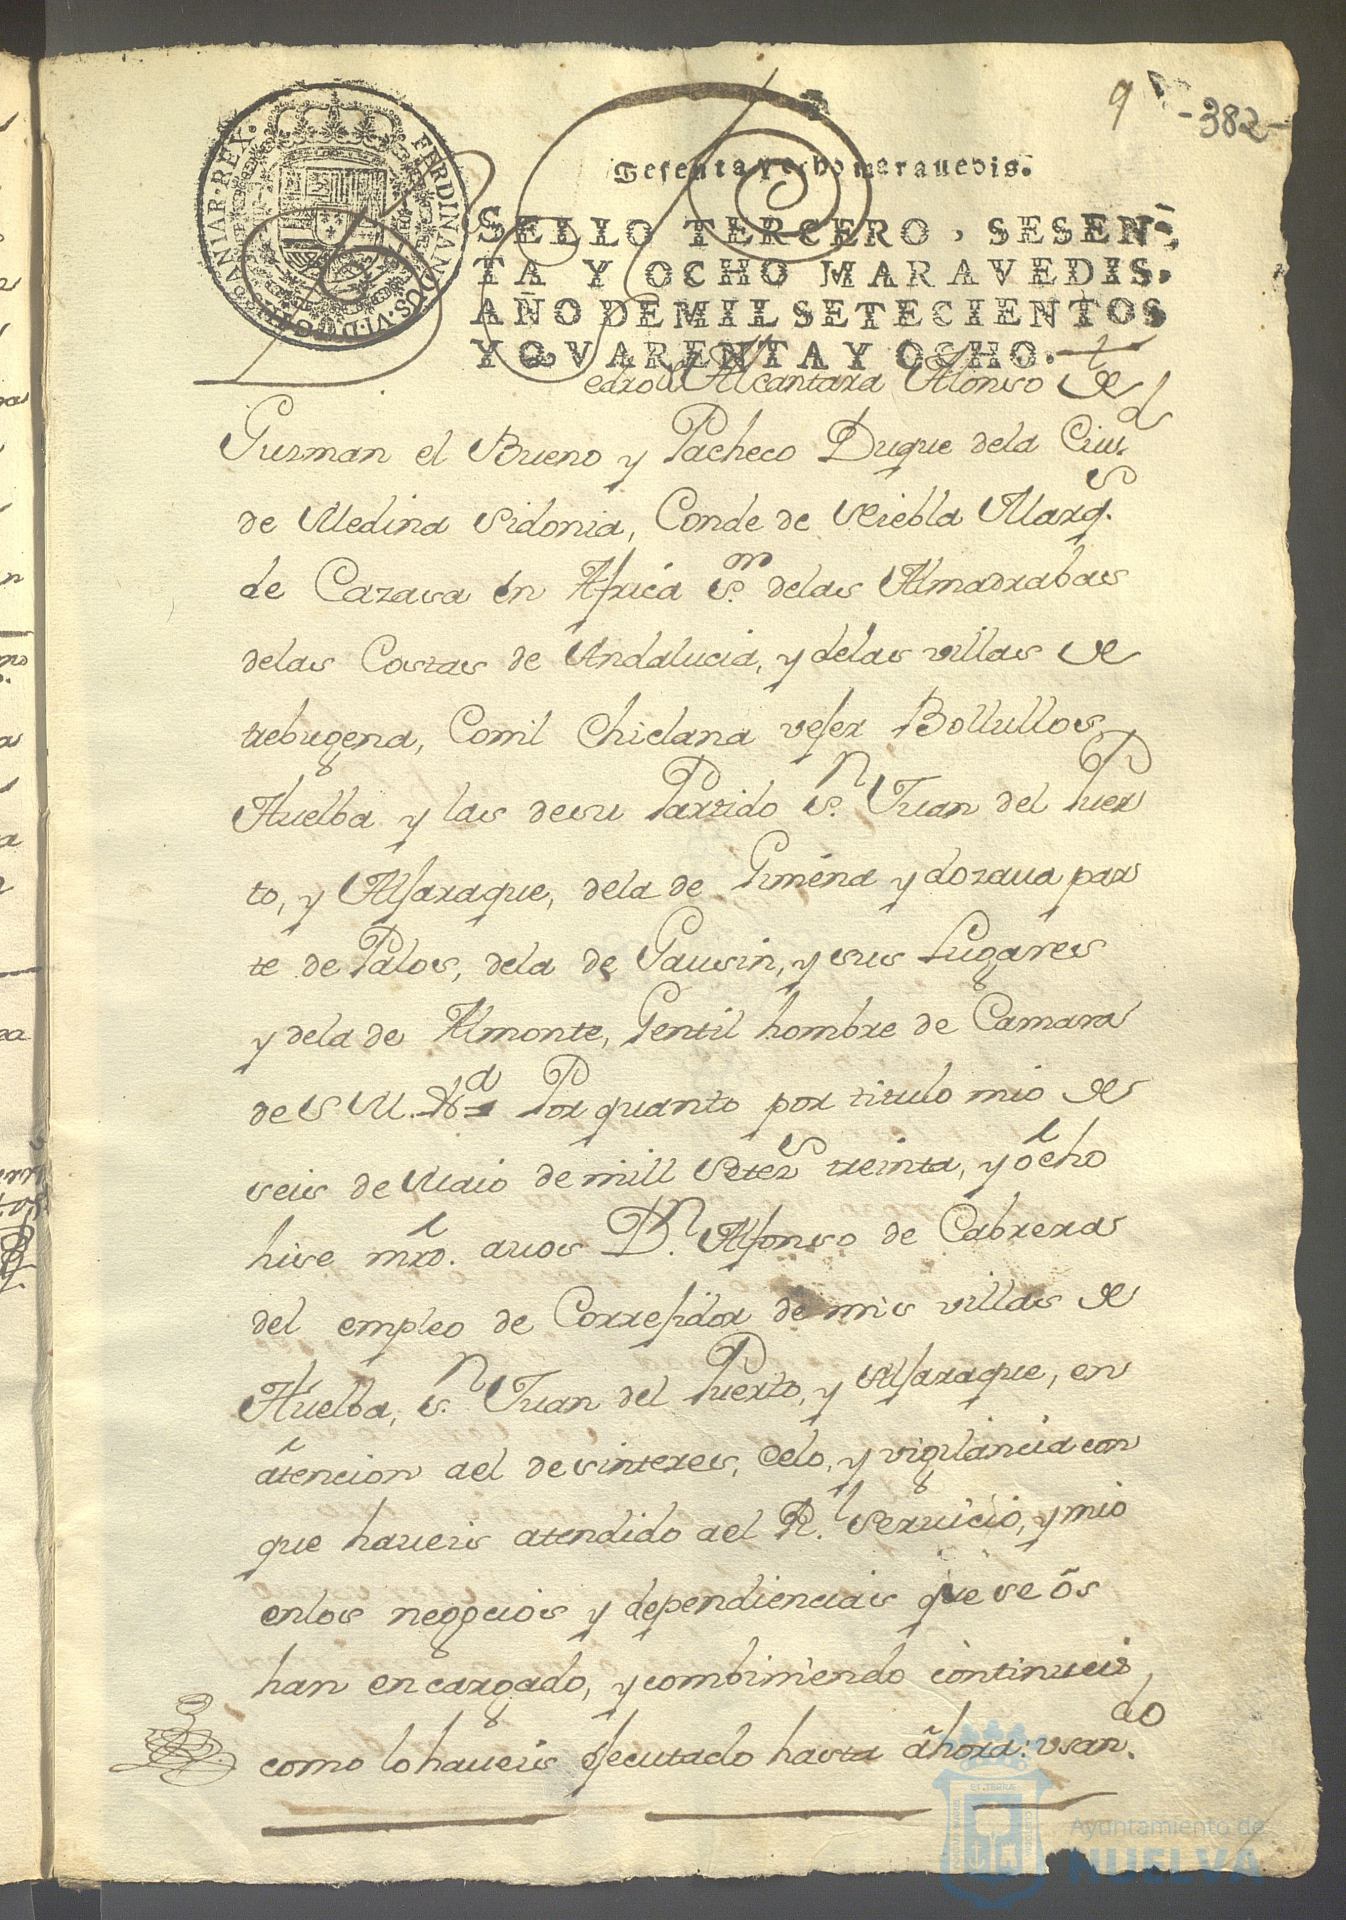 9 -382-
Sesenta y ocho maravedis.
FERDINANDUS·VI·D·G· HISPANIAR·REX·
SELLO TERCERO, SESEN-
TA Y OCHO MARAVEDIS,
AÑO DE MIL SETECIENTOS
Y QVARENTA Y OCHO.
Pedro de Alcantara Alonso de
Guzman el Bueno y Pacheco Duque dela Ciud.
de Medina Sidonia, Conde de Niebla Marqs.
de Cazasa en Africa Sr. delas Almadrabas
delas Costas de Andalucia, y delas villas de
trebugena, Conil Chiclana vejer Bollullos,
Huelba y las desu Partido Sn. Juan del Puer
to, y Aljaraque, dela de Gimena y dozava par
te de Palos, dela de Gausin, y sus Lugares
y dela de Almonte, Gentil hombre de Camara
de S M. &a= Por quanto por titulo mio de
seis de Maio de mill Setezs treinta, y ocho
hise mrd. avos Dn. Alfonso de Cabreras
del empleo de Correjidor de mis villas de
Huelba, Sn. Juan del Puerto, y Aljaraque, en
atencion ael desinteres, Celo, y vigilancia con
que haveis atendido ael Rl. Servicio, y mio
enlos negocios y dependiencias que se os
han encargado, y combiniendo continueis,
como lo haveis ejecutado hasta ahora: usando.
Ayuntamiento de
HUELVA